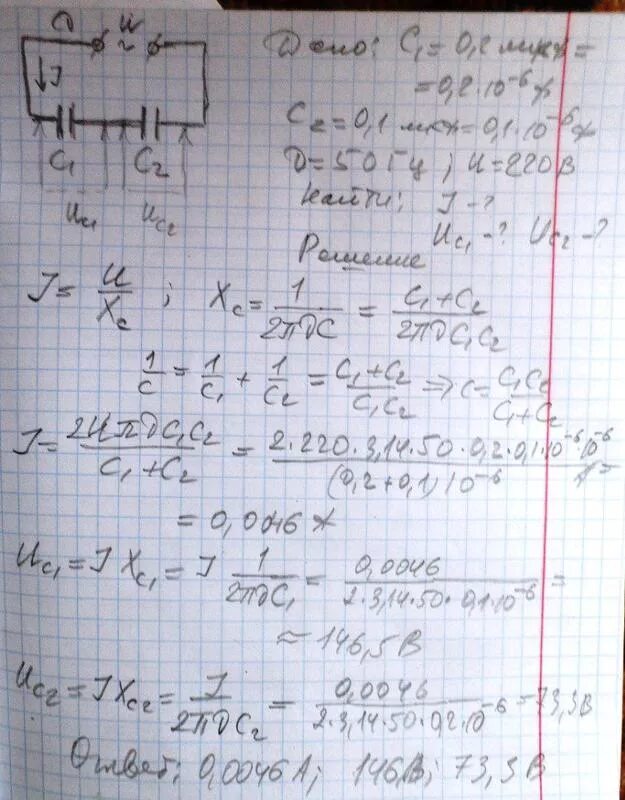 Д U
Дано: C₁ = 0,2 мкФ =
↓I
= 0,2·10⁻⁶ Ф
C₂ = 0,1 мкФ = 0,1·10⁻⁶ Ф
C₁ C₂
Д = 50 Гц; U = 220 В
Найти: I - ?
Uc₁ Uc₂
Uc₁ - ? Uc₂ - ?
Решение
I = U/Xc ; Xc = 1/(2πДC) = (C₁+C₂)/(2πДC₁C₂)
1/C = 1/C₁ + 1/C₂ = (C₁+C₂)/(C₁C₂) => C = C₁C₂/(C₁+C₂)
I = 2UπДC₁C₂/(C₁+C₂) = 2·220·3,14·50·0,2·0,1·10⁻⁶·10⁻⁶/((0,2+0,1)10⁻⁶) =
= 0,0046 А
Uc₁ = I Xc₁ = I 1/(2πДC₁) = 0,0046/(2·3,14·50·0,1·10⁻⁶) =
≈ 146,5 В
Uc₂ = I Xc₂ = I/(2πДC₂) = 0,0046/(2·3,14·50·0,2·10⁻⁶) = 73,3 В
Ответ: 0,0046 А; 146 В; 73,3 В